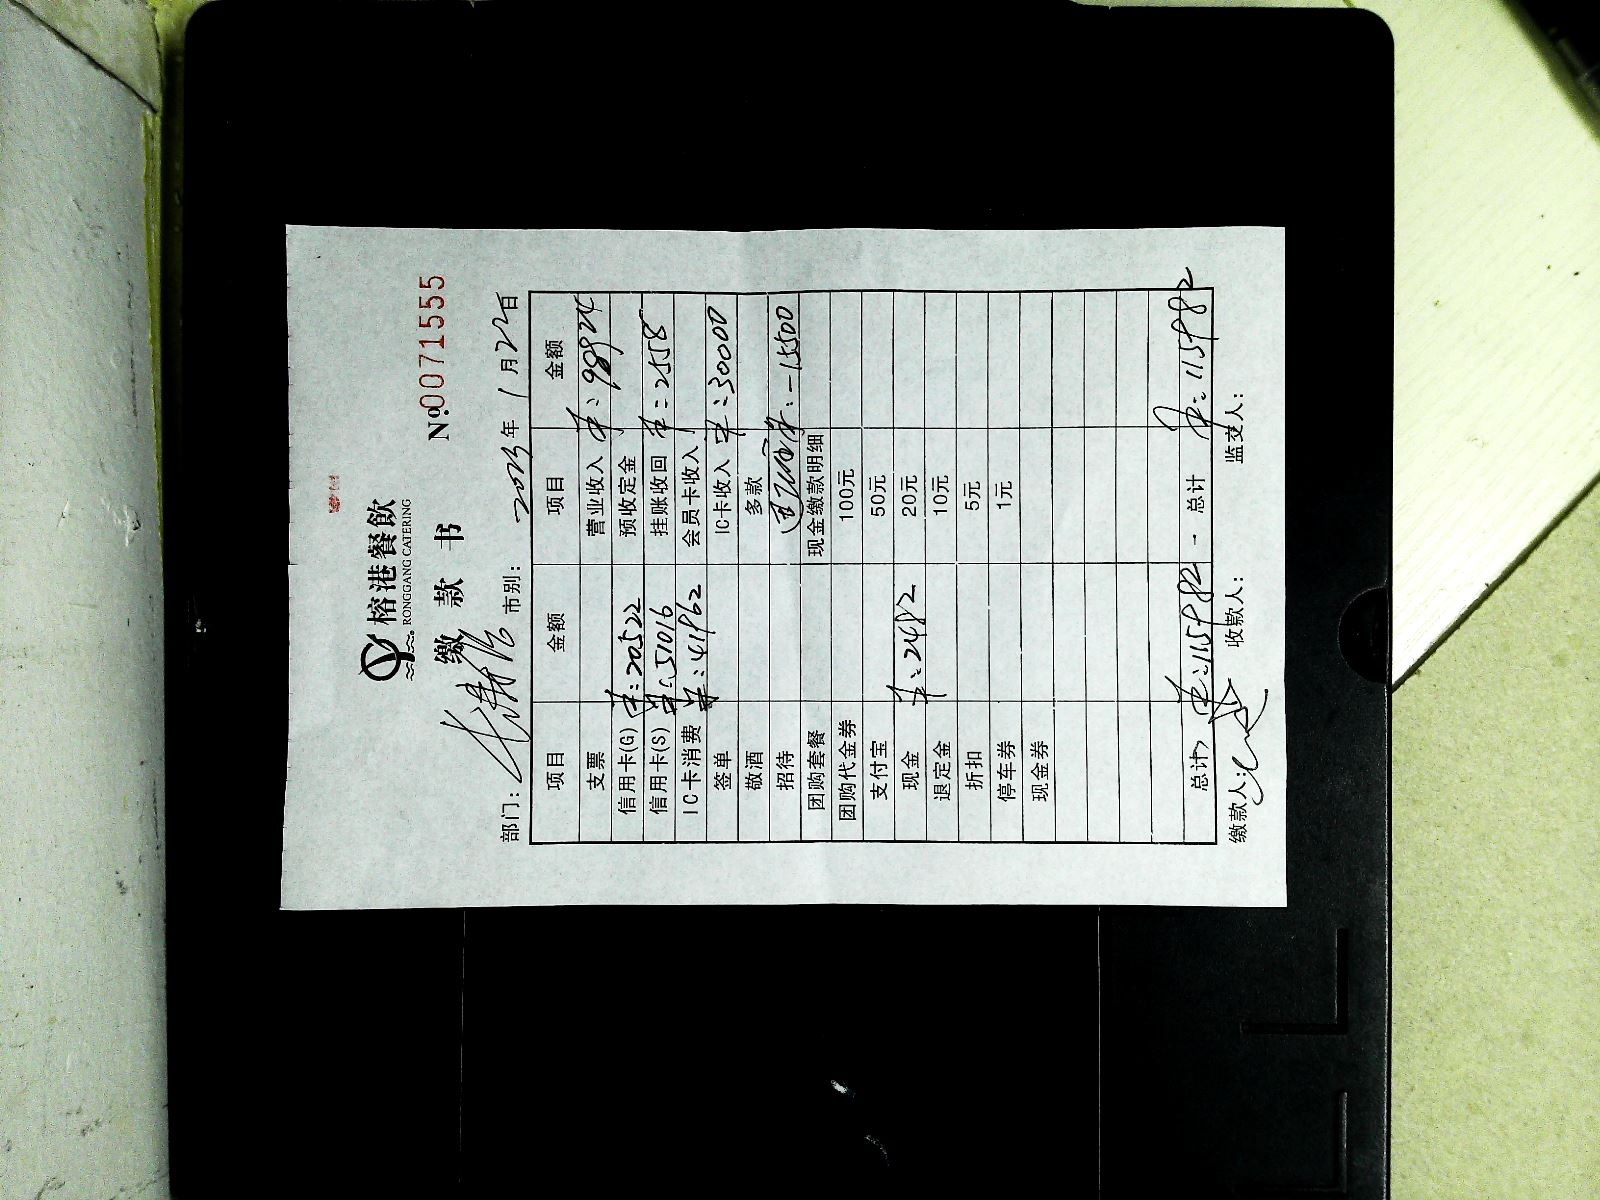 榕港餐飲
RONGGANG CATERING
缴 款 书
№0071555
部门： 市别： 2023年 1月22日
项目 金额 项目 金额
支票 营业收入 ¥:98924
信用卡(G) ¥:20522 预收定金
信用卡(S) ¥:51016 挂账收回 ¥:2558
IC卡消费 ¥:41962 会员卡收入
签单 IC卡收入 ¥:30000
敬酒 多款
招待 :-15500
团购套餐 现金缴款明细
团购代金券 100元
支付宝 50元
现金 ¥:2482 20元
退定金 10元
折扣 5元
停车券 1元
现金券
总计 ¥:115982 - 总计 ¥:115982
缴款人： 收款人： 监交人：